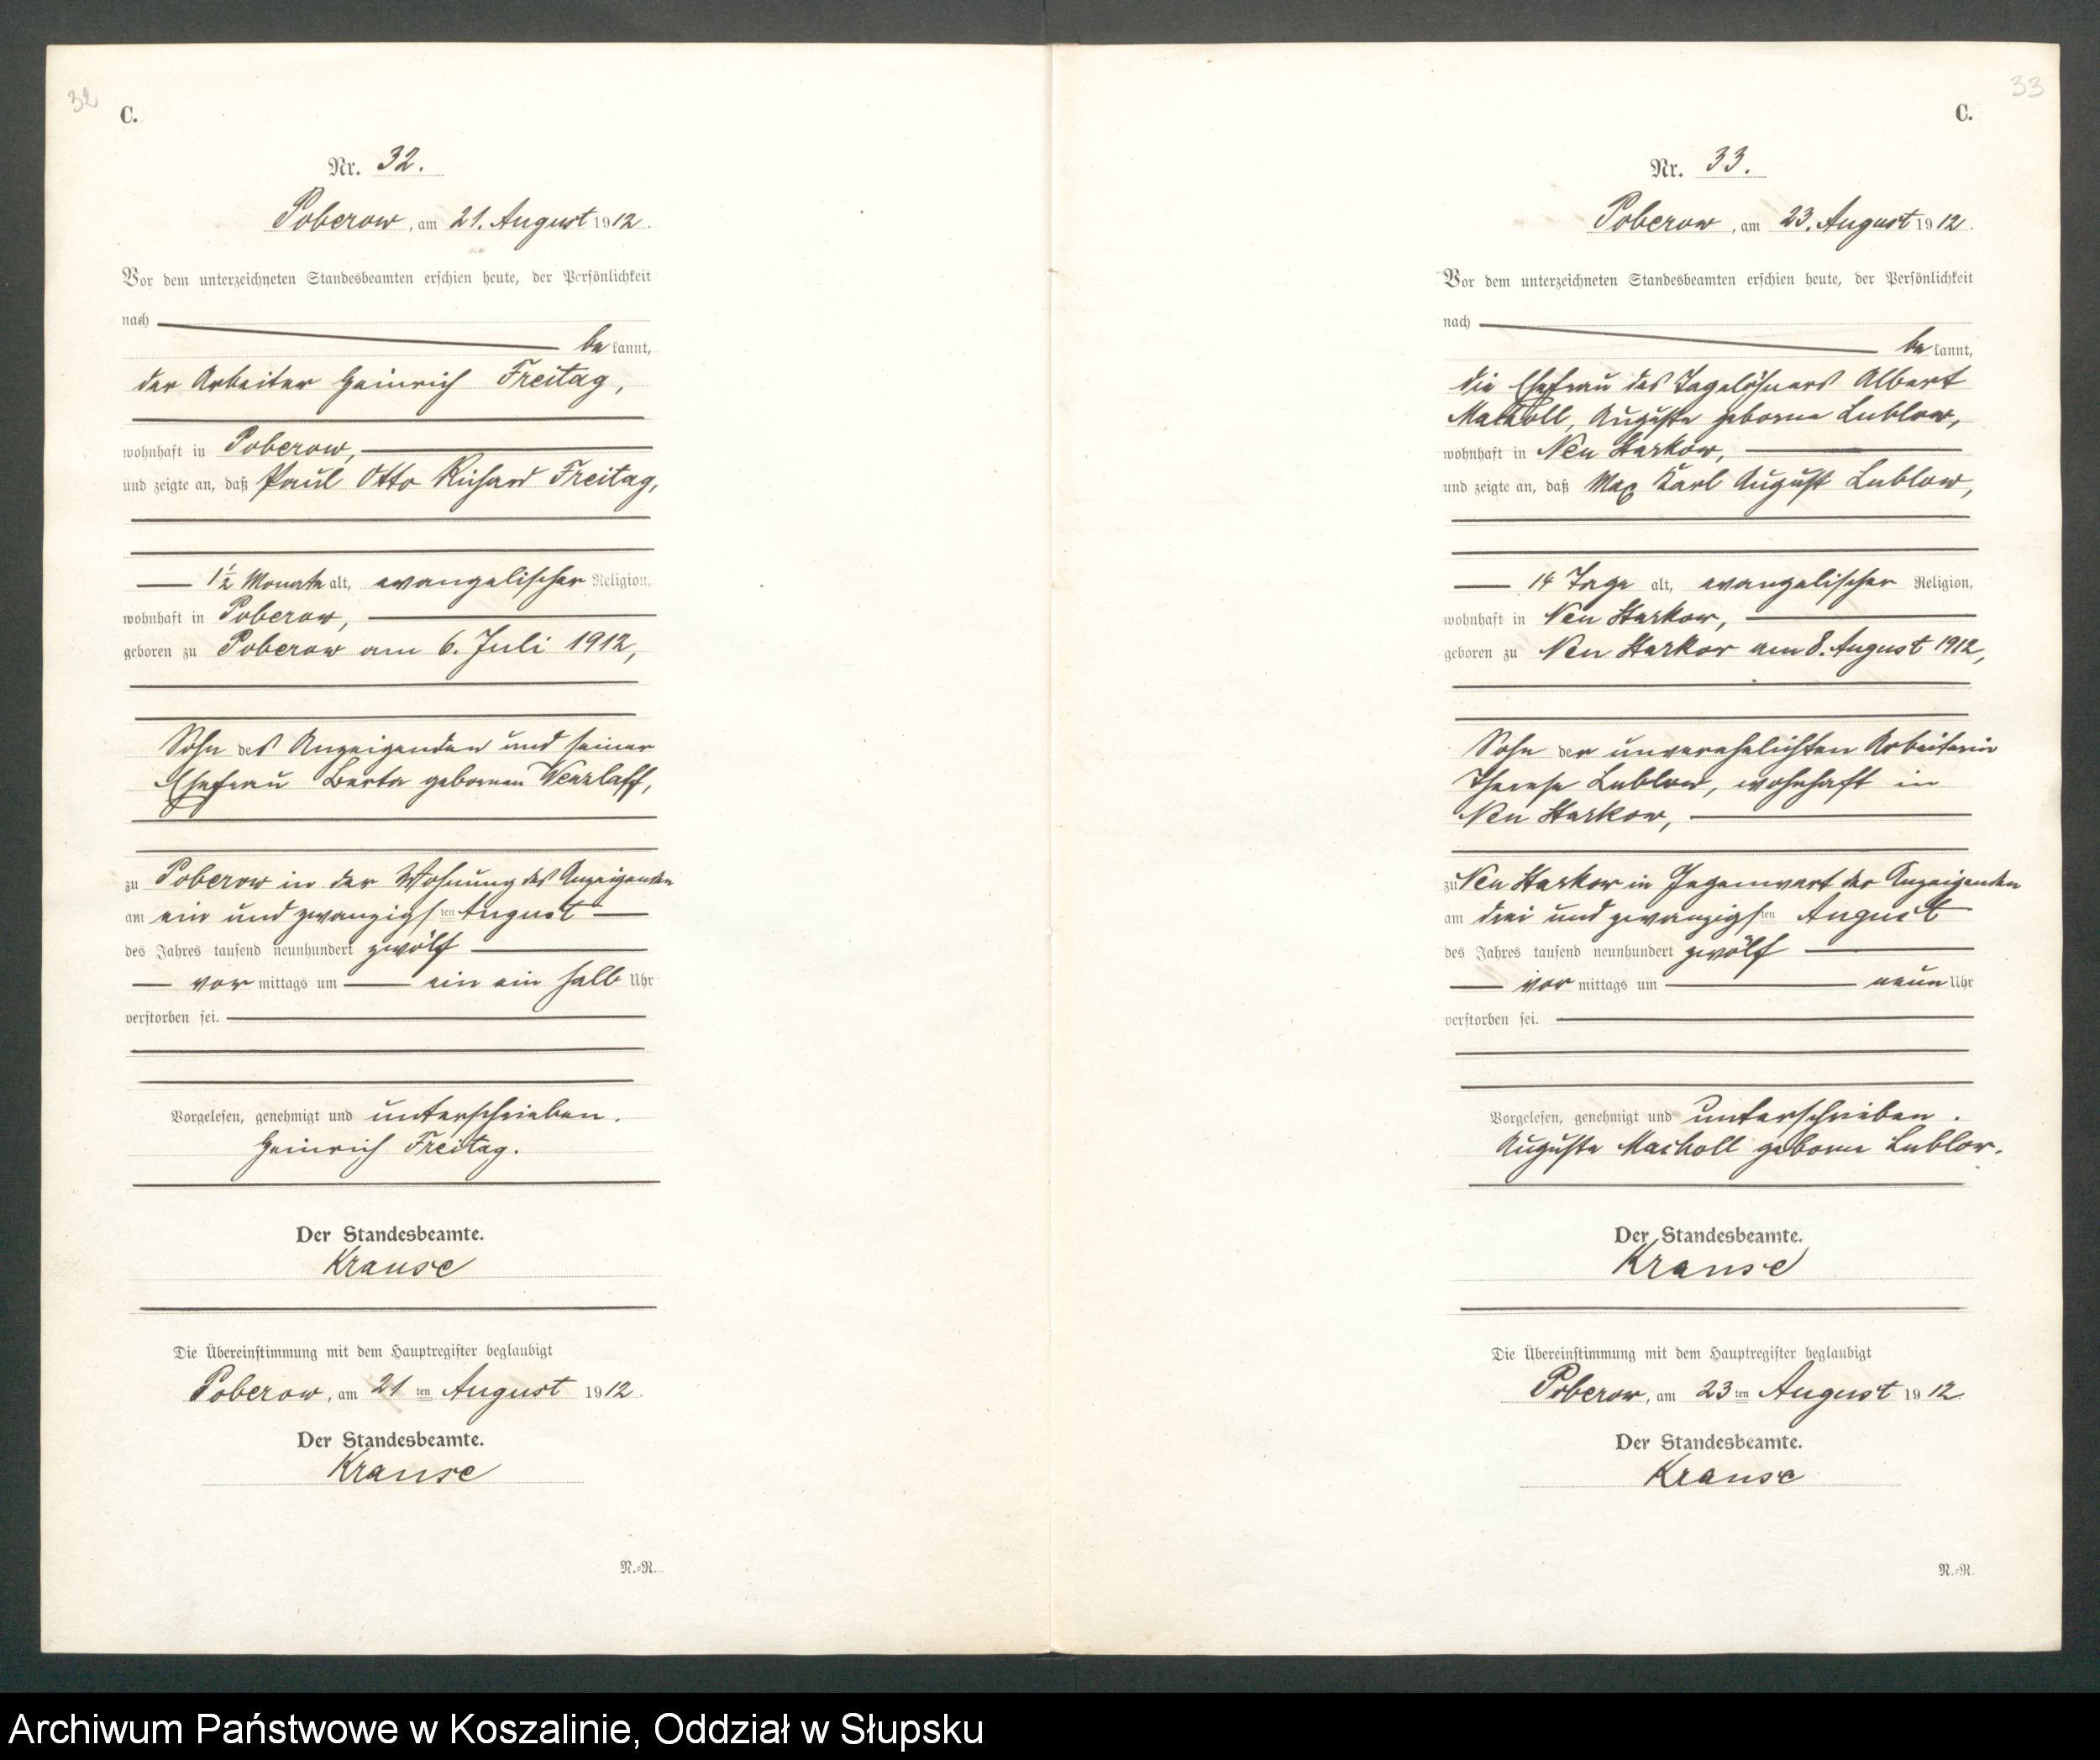 32
C.
Nr. 32.
Poberow, am 21. August 1912.
Vor dem unterzeichneten Standesbeamten erschien heute, der Persönlichkeit
nach
be kannt,
der Arbeiter Heinrich Freitag,
wohnhaft in Poberow,
und zeigte an, daß Paul Otto Richard Freitag,
1 1/2 Monate alt, evangelischer Religion,
wohnhaft in Poberow,
geboren zu Poberow am 6. Juli 1912,
Sohn des Anzeigenden und seiner
Ehefrau Berta gebornen
zu Poberow in der Wohnung des Anzeigenden
am ein und zwanzigsten August
des Jahres tausend neunhundert zwölf
vor mittags um ein ein halb Uhr
verstorben sei.
Vorgelesen, genehmigt und unterschrieben.
Heinrich Freitag.
Der Standesbeamte.
Krause
Die Übereinstimmung mit dem Hauptregister beglaubigt
Poberow, am 21 ten August 1912.
Der Standesbeamte.
Krause
N.=R.
33
C.
Nr. 33.
Poberow, am 23. August 1912.
Vor dem unterzeichneten Standesbeamten erschien heute, der Persönlichkeit
nach
be kannt,
die Ehefrau des Tagelöhners Albert
Macholl, Auguste geborne Lublow,
wohnhaft in Neu Harkow,
und zeigte an, daß Max Karl August Lublow,
14 Tage alt, evangelischer Religion,
wohnhaft in Neu Harkow,
geboren zu Neu Harkow am 8. August 1912,
Sohn der unverehelichten Arbeiterin
Therese Lublow, wohnhaft in
Neu Harkow,
zu Neu Harkow in Gegenwart der Anzeigenden
am drei und zwanzigsten August
des Jahres tausend neunhundert zwölf
vor mittags um neun Uhr
verstorben sei.
Vorgelesen, genehmigt und unterschrieben.
Auguste Macholl geborne Lublow.
Der Standesbeamte.
Krause
Die Übereinstimmung mit dem Hauptregister beglaubigt
Poberow, am 23 ten August 1912.
Der Standesbeamte.
Krause
N.=R.
Archiwum Państwowe w Koszalinie, Oddział w Słupsku